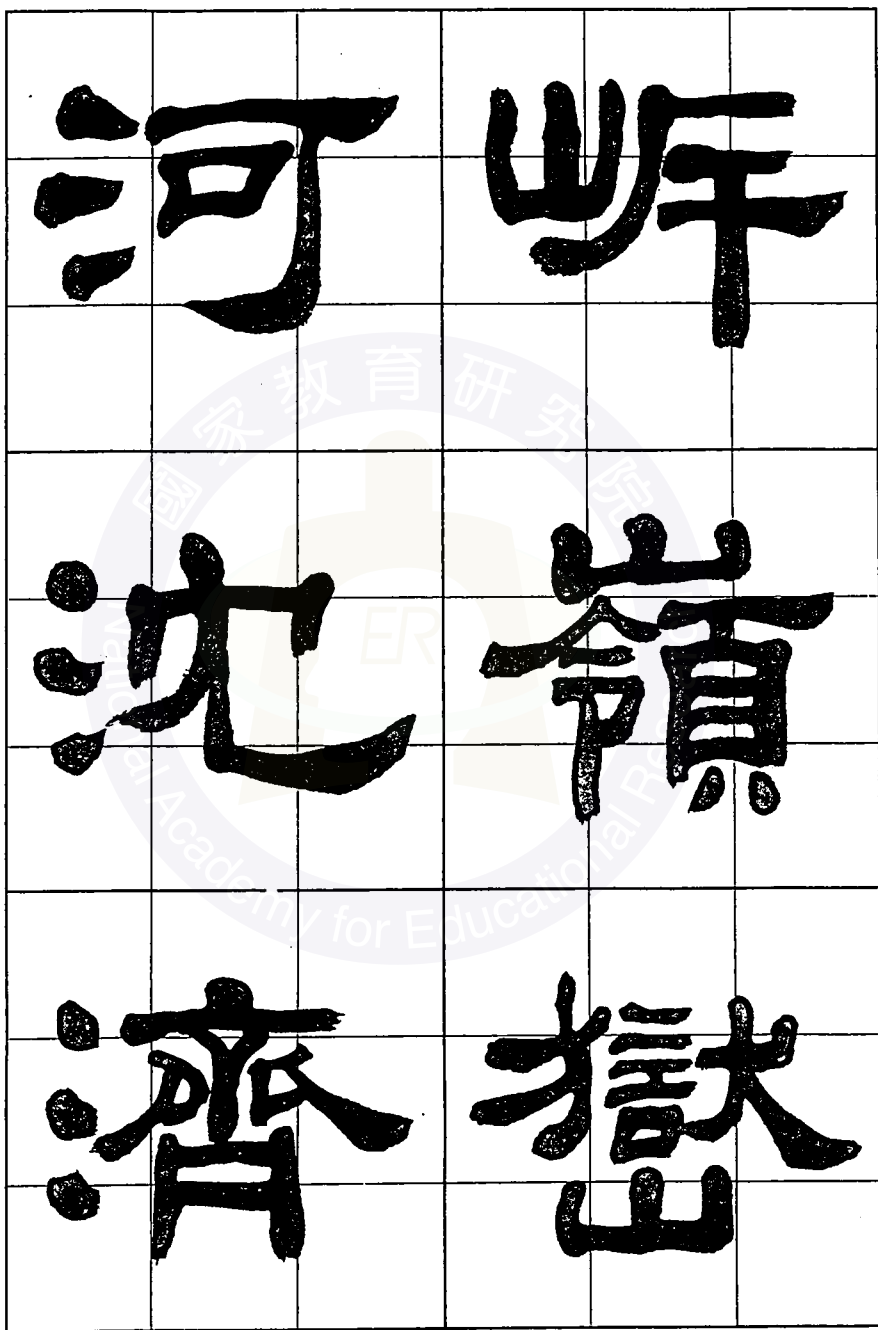 岸嶺嶽
河沈濟
國家教育研究院
National Academy for Educational Research